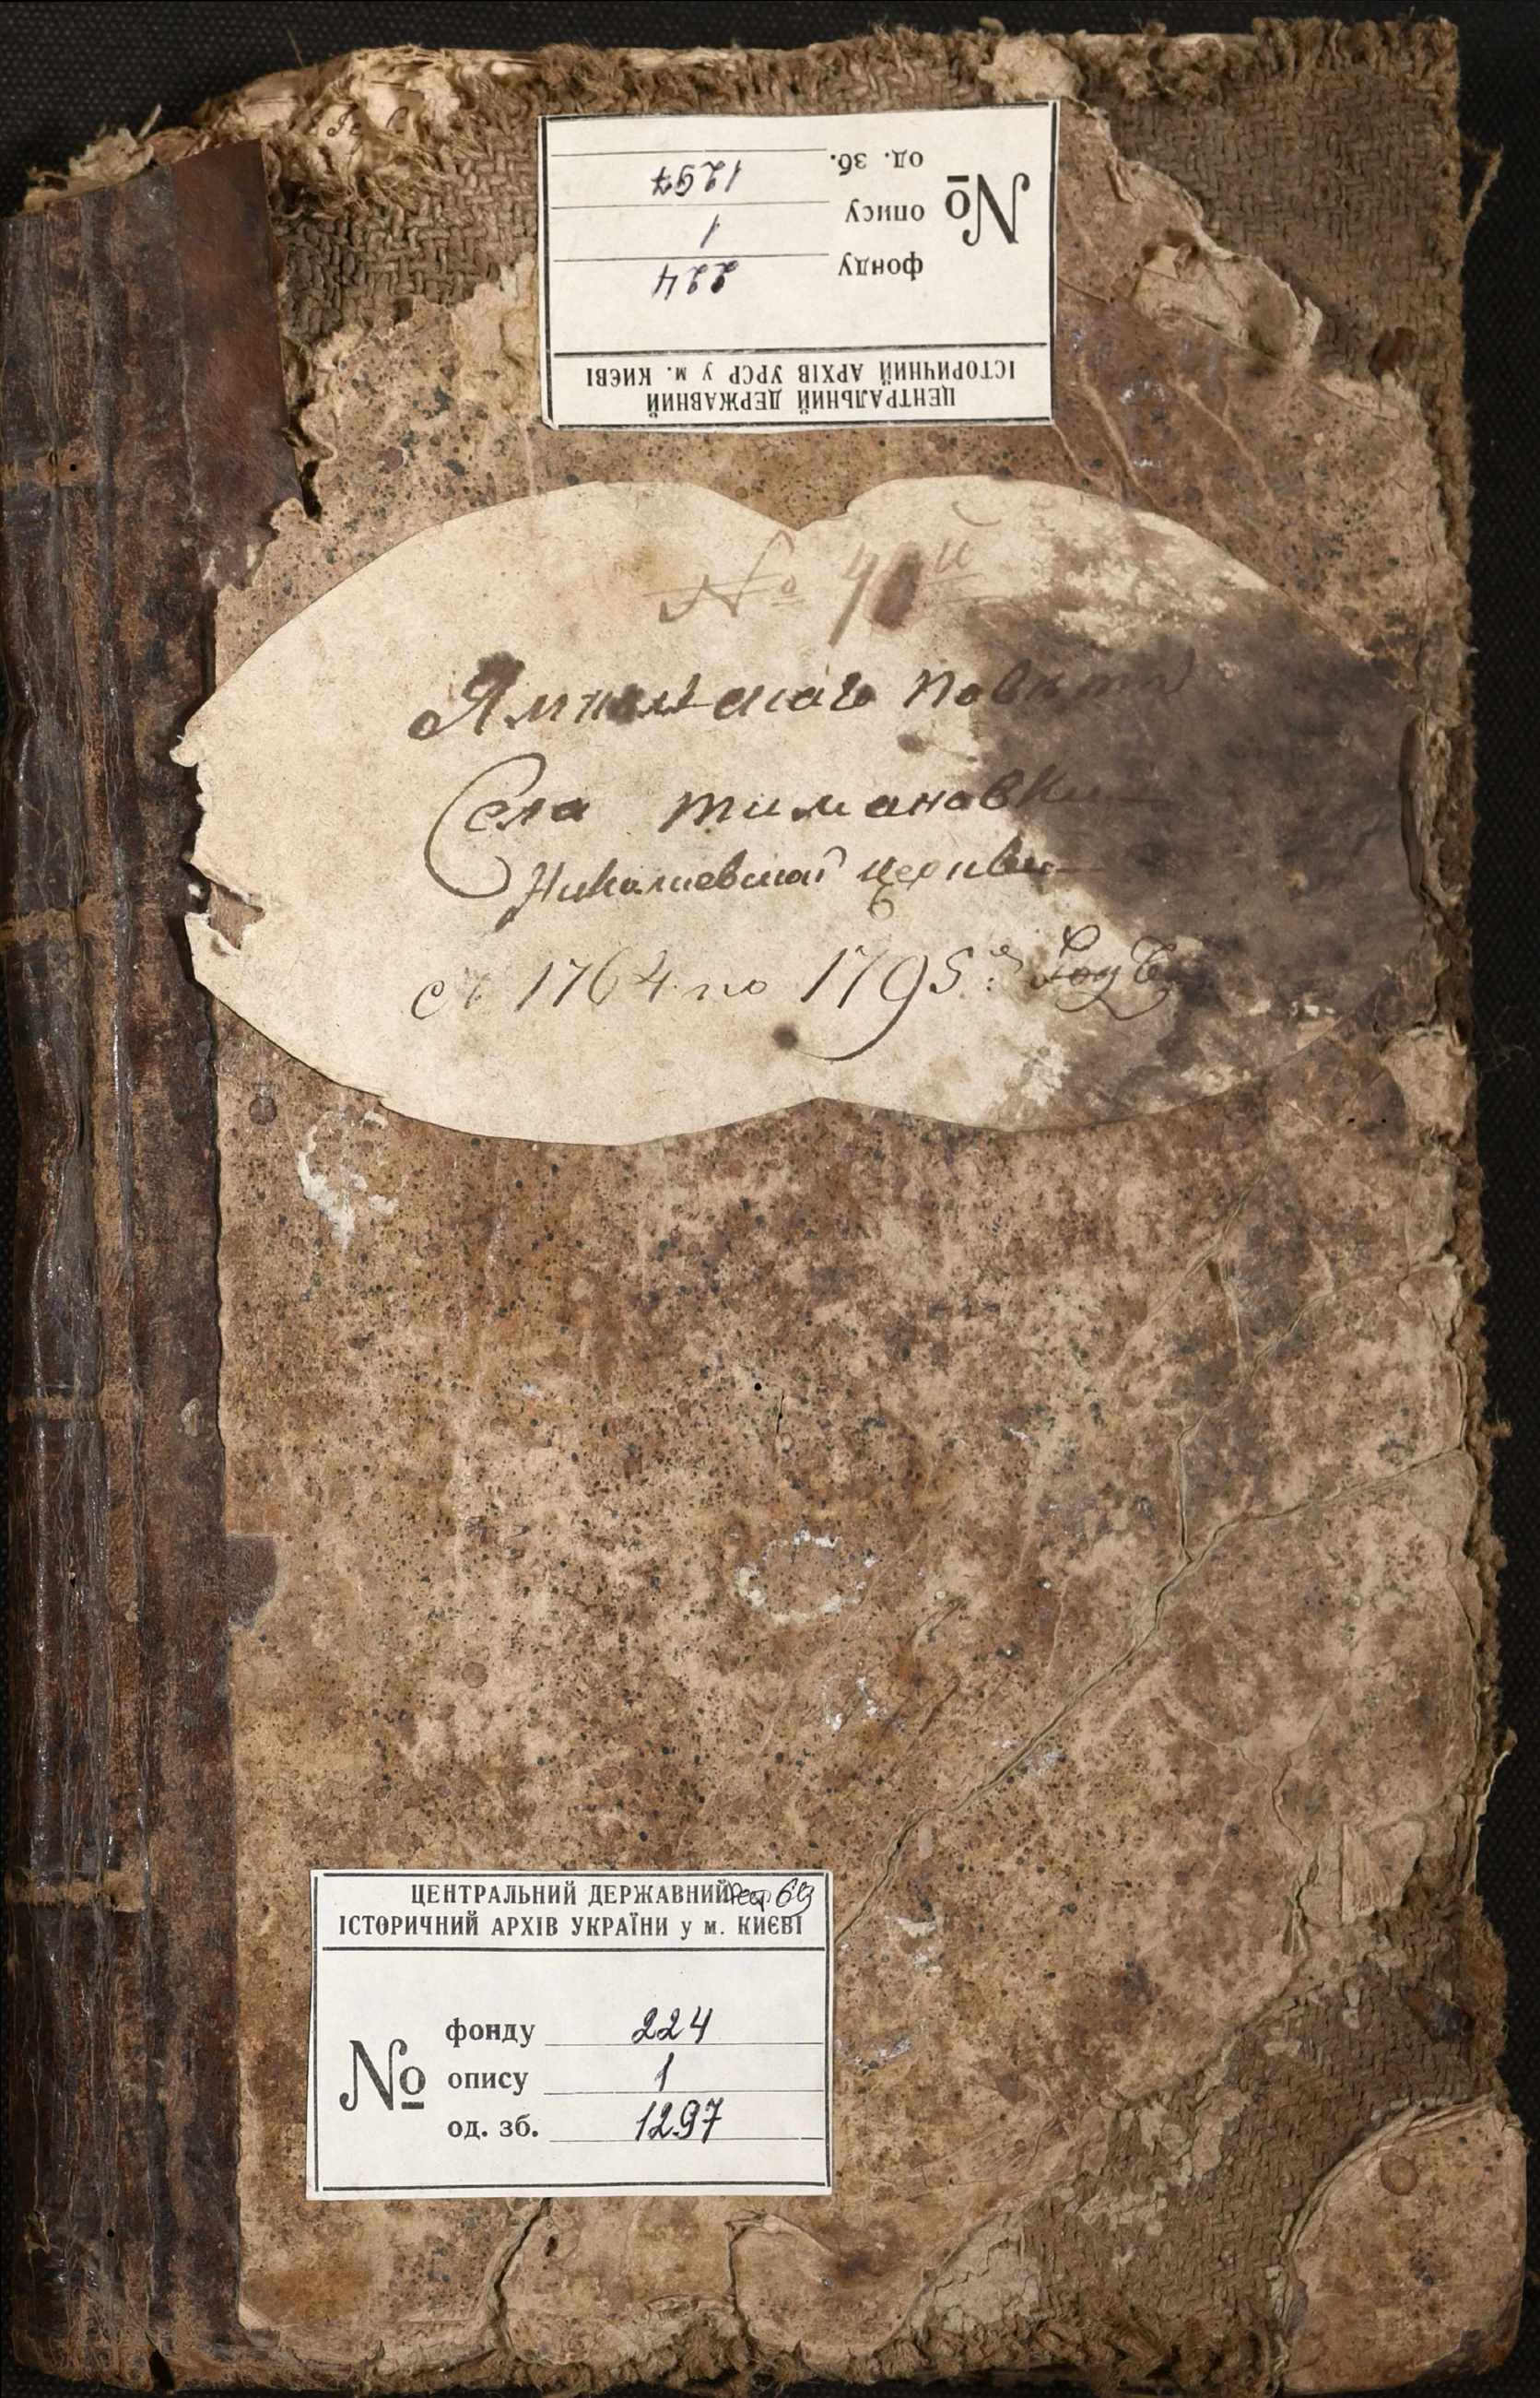 №
од. зб. 1297
опису 1
фонду 224
ЦЕНТРАЛЬНИЙ ДЕРЖАВНИЙ
ІСТОРИЧНИЙ АРХІВ УРСР у м. КИЄВІ
№
Ямпольскаго повѣта
Села тимановки
Николаевской церкви
съ 1764 по 1795: Годъ
ЦЕНТРАЛЬНИЙ ДЕРЖАВНИЙ
ІСТОРИЧНИЙ АРХІВ УКРАЇНИ у м. КИЄВІ
№
фонду 224
опису 1
од. зб. 1297